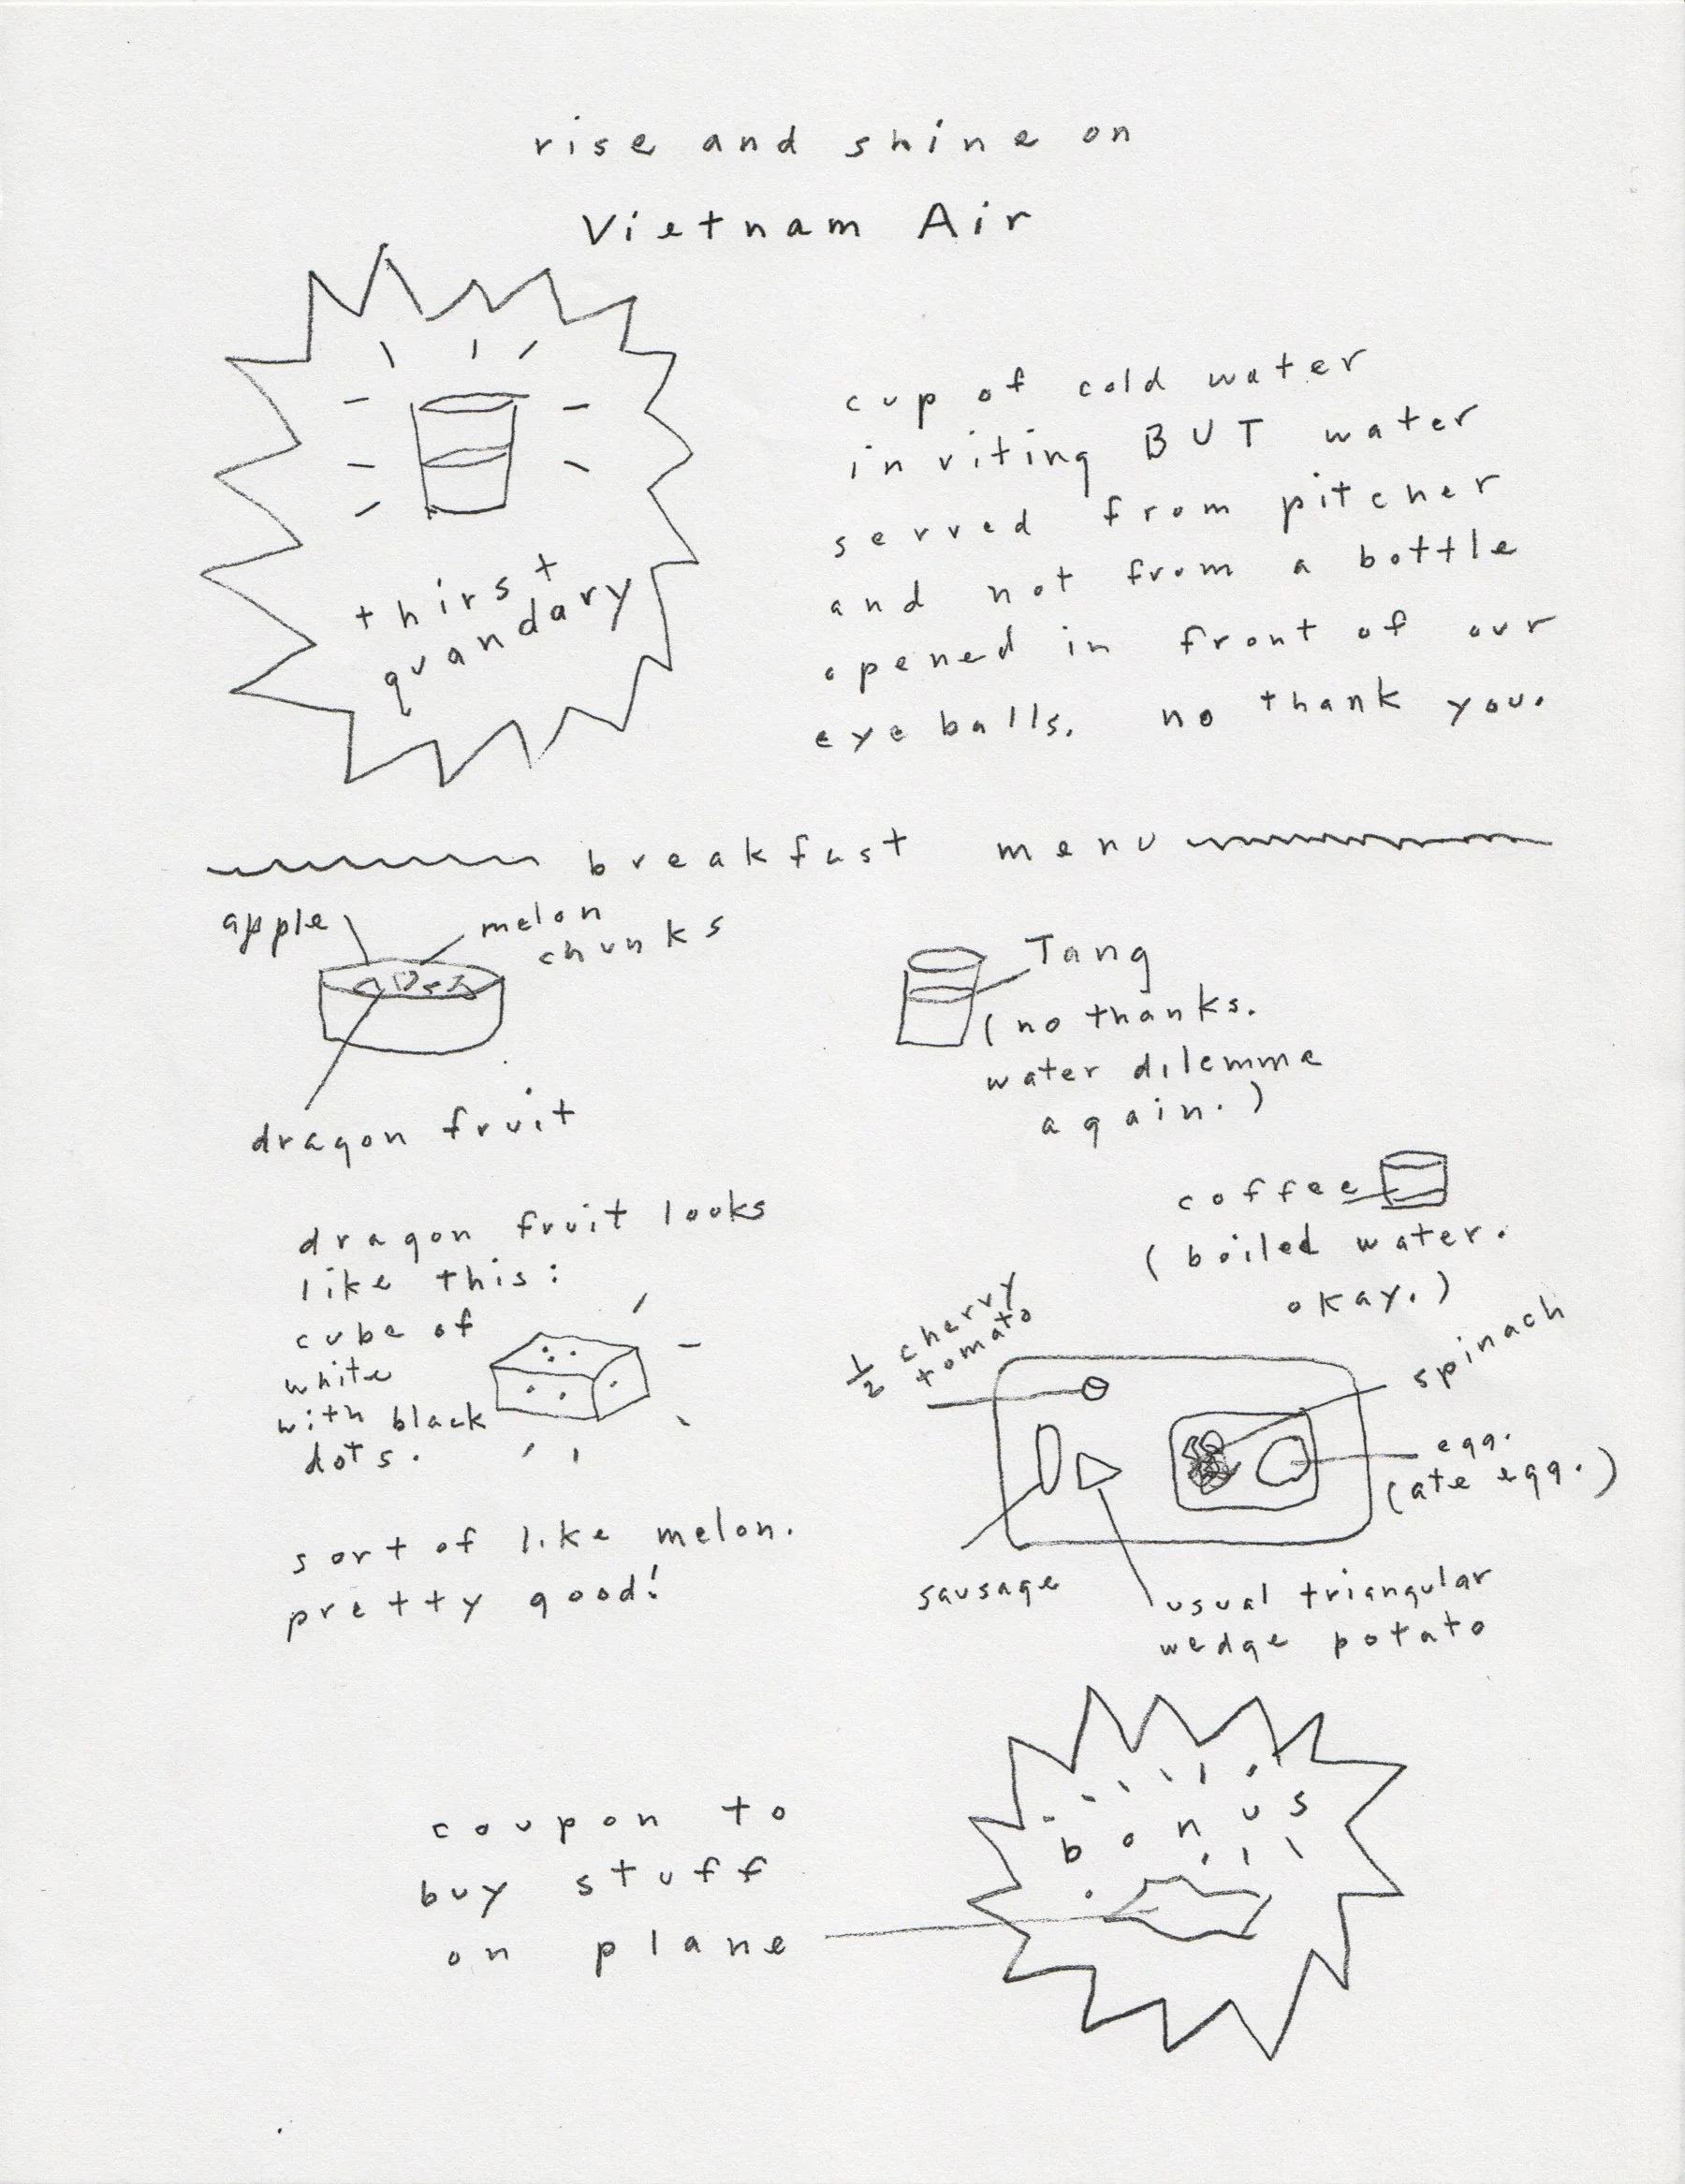 rise and shine on
Vietnam Air
thirst
quandary
cup of cold water
inviting BUT water
served from pitcher
and not from a bottle
opened in front of our
eyeballs. no thank you.
breakfast menu
apple
melon
chunks
dragon fruit
dragon fruit looks
like this:
cube of
white
with black
dots.
sort of like melon.
pretty good!
Tang
(no thanks.
water dilemma
again.)
coffee
(boiled water.
okay.)
1/2 cherry
tomato
spinach
egg.
(ate egg.)
sausage
usual triangular
wedge potato
bonus
coupon to
buy stuff
on plane